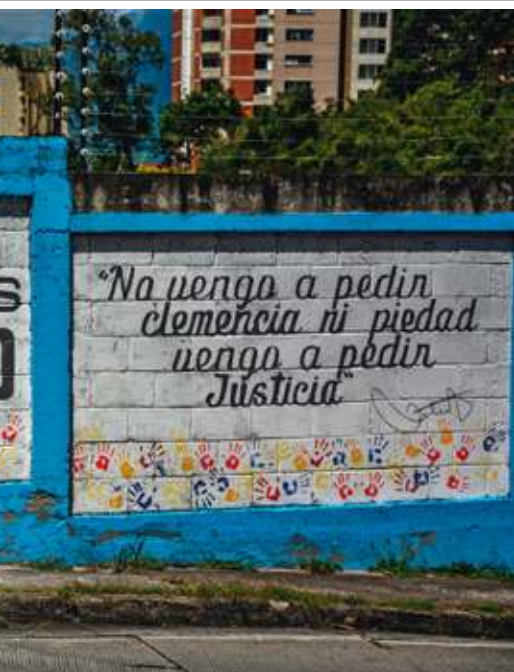 "No vengo a pedir
clemencia ni piedad
vengo a pedir
Justicia"
S